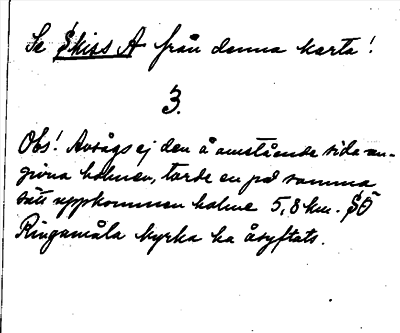 Se Skiss A från denna karta!
3.
Obs! Avsågs ej den å omstående sida an-
givna holmen, torde en på samma
sätt uppkommen holme 5,8 km. SÖ
Ringamåla kyrka ha åsyftats.